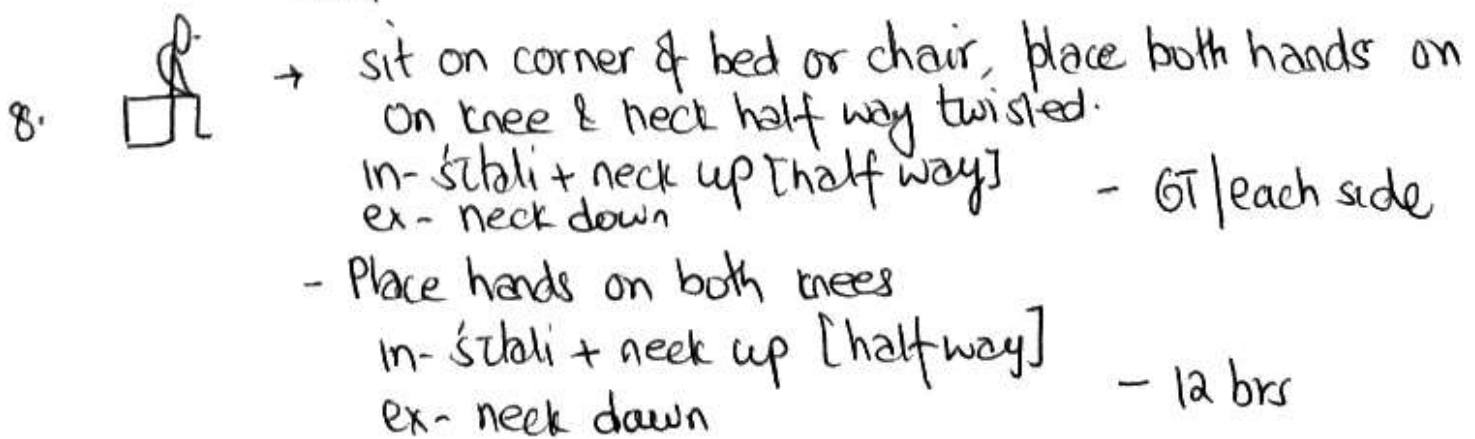 8. → sit on corner of bed or chair, place both hands on
on knee & neck half way twisted.
in- śītali + neck up [half way] - 6T/each side
ex- neck down
- Place hands on both knees
in- śītali + neck up [halfway]
ex- neck down - 12 brs